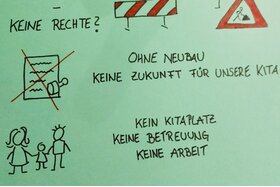 –
KEINE RECHTE?
OHNE NEUBAU
KEINE ZUKUNFT FÜR UNSERE KITA
KEIN KITAPLATZ
KEINE BETREUUNG
KEINE ARBEIT